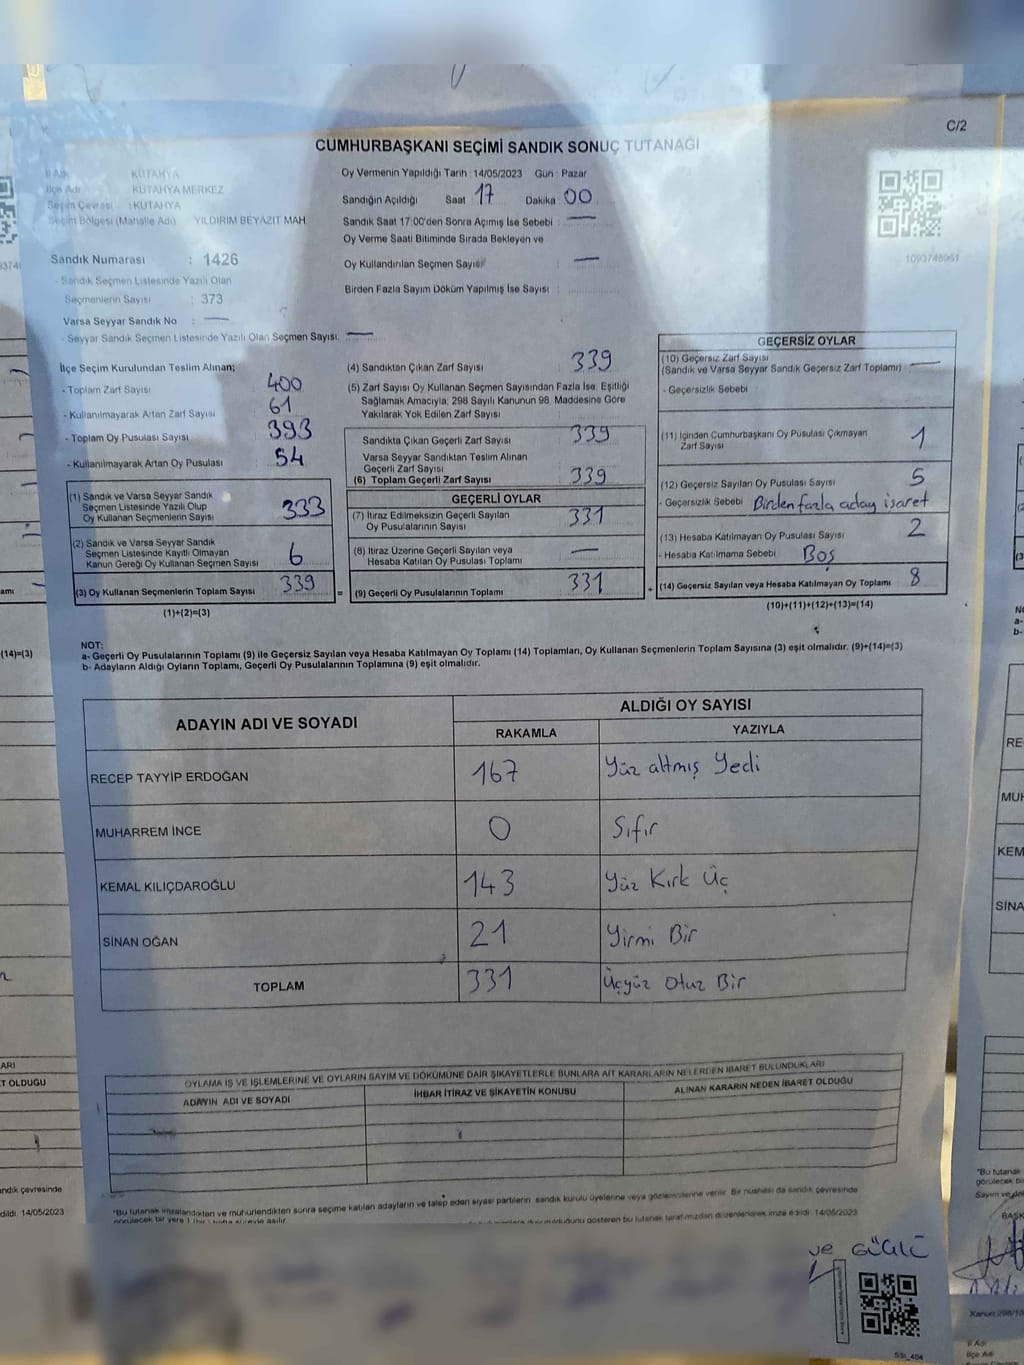 C/2
CUMHURBAŞKANI SEÇİMİ SANDIK SONUÇ TUTANAĞI
İl Adı : KÜTAHYA
İlçe Adı : KÜTAHYA MERKEZ
Seçim Çevresi : KÜTAHYA
Seçim Bölgesi (Mahalle Adı) YILDIRIM BEYAZIT MAH.
Sandık Numarası : 1426
- Sandık Seçmen Listesinde Yazılı Olan
Seçmenlerin Sayısı : 373
Varsa Seyyar Sandık No : —
- Seyyar Sandık Seçmen Listesinde Yazılı Olan Seçmen Sayısı: —
Oy Vermenin Yapıldığı Tarih : 14/05/2023 Gün : Pazar
Sandığın Açıldığı Saat 17 Dakika 00
Sandık Saat 17:00'den Sonra Açımış İse Sebebi : —
Oy Verme Saati Bitiminde Sırada Bekleyen ve
Oy Kullandırılan Seçmen Sayısı : —
Birden Fazla Sayım Döküm Yapılmış İse Sayısı :
1093748961
İlçe Seçim Kurulundan Teslim Alınan;
- Toplam Zarf Sayısı : 400
- Kullanılmayarak Artan Zarf Sayısı : 61
- Toplam Oy Pusulası Sayısı : 393
- Kullanılmayarak Artan Oy Pusulası : 54
(1) Sandık ve Varsa Seyyar Sandık
Seçmen Listesinde Yazılı Olup
Oy Kullanan Seçmenlerin Sayısı : 333
(2) Sandık ve Varsa Seyyar Sandık
Seçmen Listesinde Kayıtlı Olmayan
Kanun Gereği Oy Kullanan Seçmen Sayısı : 6
(3) Oy Kullanan Seçmenlerin Toplam Sayısı : 339
(1)+(2)=(3)
(4) Sandıktan Çıkan Zarf Sayısı : 339
(5) Zarf Sayısı Oy Kullanan Seçmen Sayısından Fazla İse, Eşitliği
Sağlamak Amacıyla; 298 Sayılı Kanunun 98. Maddesine Göre
Yakılarak Yok Edilen Zarf Sayısı :
Sandıkta Çıkan Geçerli Zarf Sayısı : 339
Varsa Seyyar Sandıktan Teslim Alınan
Geçerli Zarf Sayısı :
(6) Toplam Geçerli Zarf Sayısı : 339
GEÇERLİ OYLAR
(7) İtiraz Edilmeksizin Geçerli Sayılan
Oy Pusulalarının Sayısı : 331
(8) İtiraz Üzerine Geçerli Sayılan veya
Hesaba Katılan Oy Pusulası Toplamı : —
= (9) Geçerli Oy Pusulalarının Toplamı : 331
GEÇERSİZ OYLAR
(10) Geçersiz Zarf Sayısı
(Sandık ve Varsa Seyyar Sandık Geçersiz Zarf Toplamı) : —
- Geçersizlik Sebebi :
(11) İçinden Cumhurbaşkanı Oy Pusulası Çıkmayan
Zarf Sayısı : 1
(12) Geçersiz Sayılan Oy Pusulası Sayısı : 5
- Geçersizlik Sebebi : Birden fazla aday işaret
(13) Hesaba Katılmayan Oy Pusulası Sayısı : 2
- Hesaba Katılmama Sebebi : Boş
+ (14) Geçersiz Sayılan veya Hesaba Katılmayan Oy Toplamı : 8
(10)+(11)+(12)+(13)=(14)
NOT:
a- Geçerli Oy Pusulalarının Toplamı (9) ile Geçersiz Sayılan veya Hesaba Katılmayan Oy Toplamı (14) Toplamları, Oy Kullanan Seçmenlerin Toplam Sayısına (3) eşit olmalıdır. (9)+(14)=(3)
b- Adayların Aldığı Oyların Toplamı, Geçerli Oy Pusulalarının Toplamına (9) eşit olmalıdır.
ADAYIN ADI VE SOYADI ALDIĞI OY SAYISI
RAKAMLA YAZIYLA
RECEP TAYYİP ERDOĞAN 167 Yüz altmış Yedi
MUHARREM İNCE 0 Sıfır
KEMAL KILIÇDAROĞLU 143 Yüz Kırk Üç
SİNAN OĞAN 21 Yirmi Bir
TOPLAM 331 Üçyüz Otuz Bir
OYLAMA İŞ VE İŞLEMLERİNE VE OYLARIN SAYIM VE DÖKÜMÜNE DAİR ŞİKAYETLERLE BUNLARA AİT KARARLARIN NELERDEN İBARET BULUNDUKLARI
ADAYIN ADI VE SOYADI İHBAR İTİRAZ VE ŞİKAYETİN KONUSU ALINAN KARARIN NEDEN İBARET OLDUĞU
*Bu tutanak imzalandıktan ve mühürlendikten sonra seçime katılan adayların ve talep eden siyasi partilerin, sandık kurulu üyelerine veya gözlemcilerine verilir. Bir nüshası da sandık çevresinde
görülecek bir yere 1 hafta süreyle asılır. olduğunu gösteren bu tutanak tarafımızdan düzenlenerek imza edildi. 14/05/2023
ve GÜÇLÜ
SSI_404